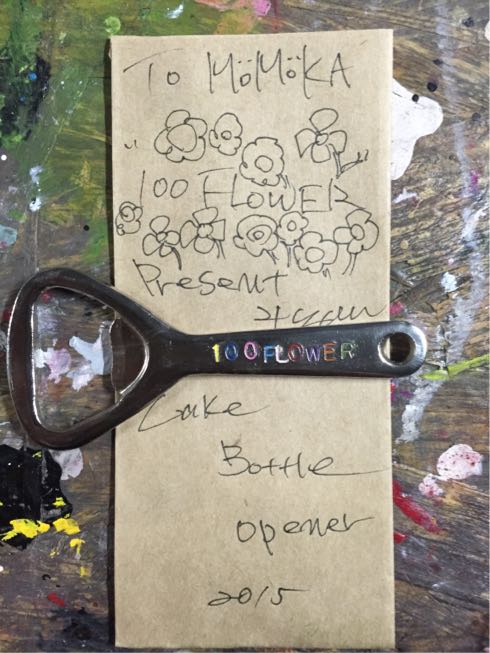 To MöMöKA
100 FLOWER
Present
100FLOWER
Cake
Bottle
opener
2015